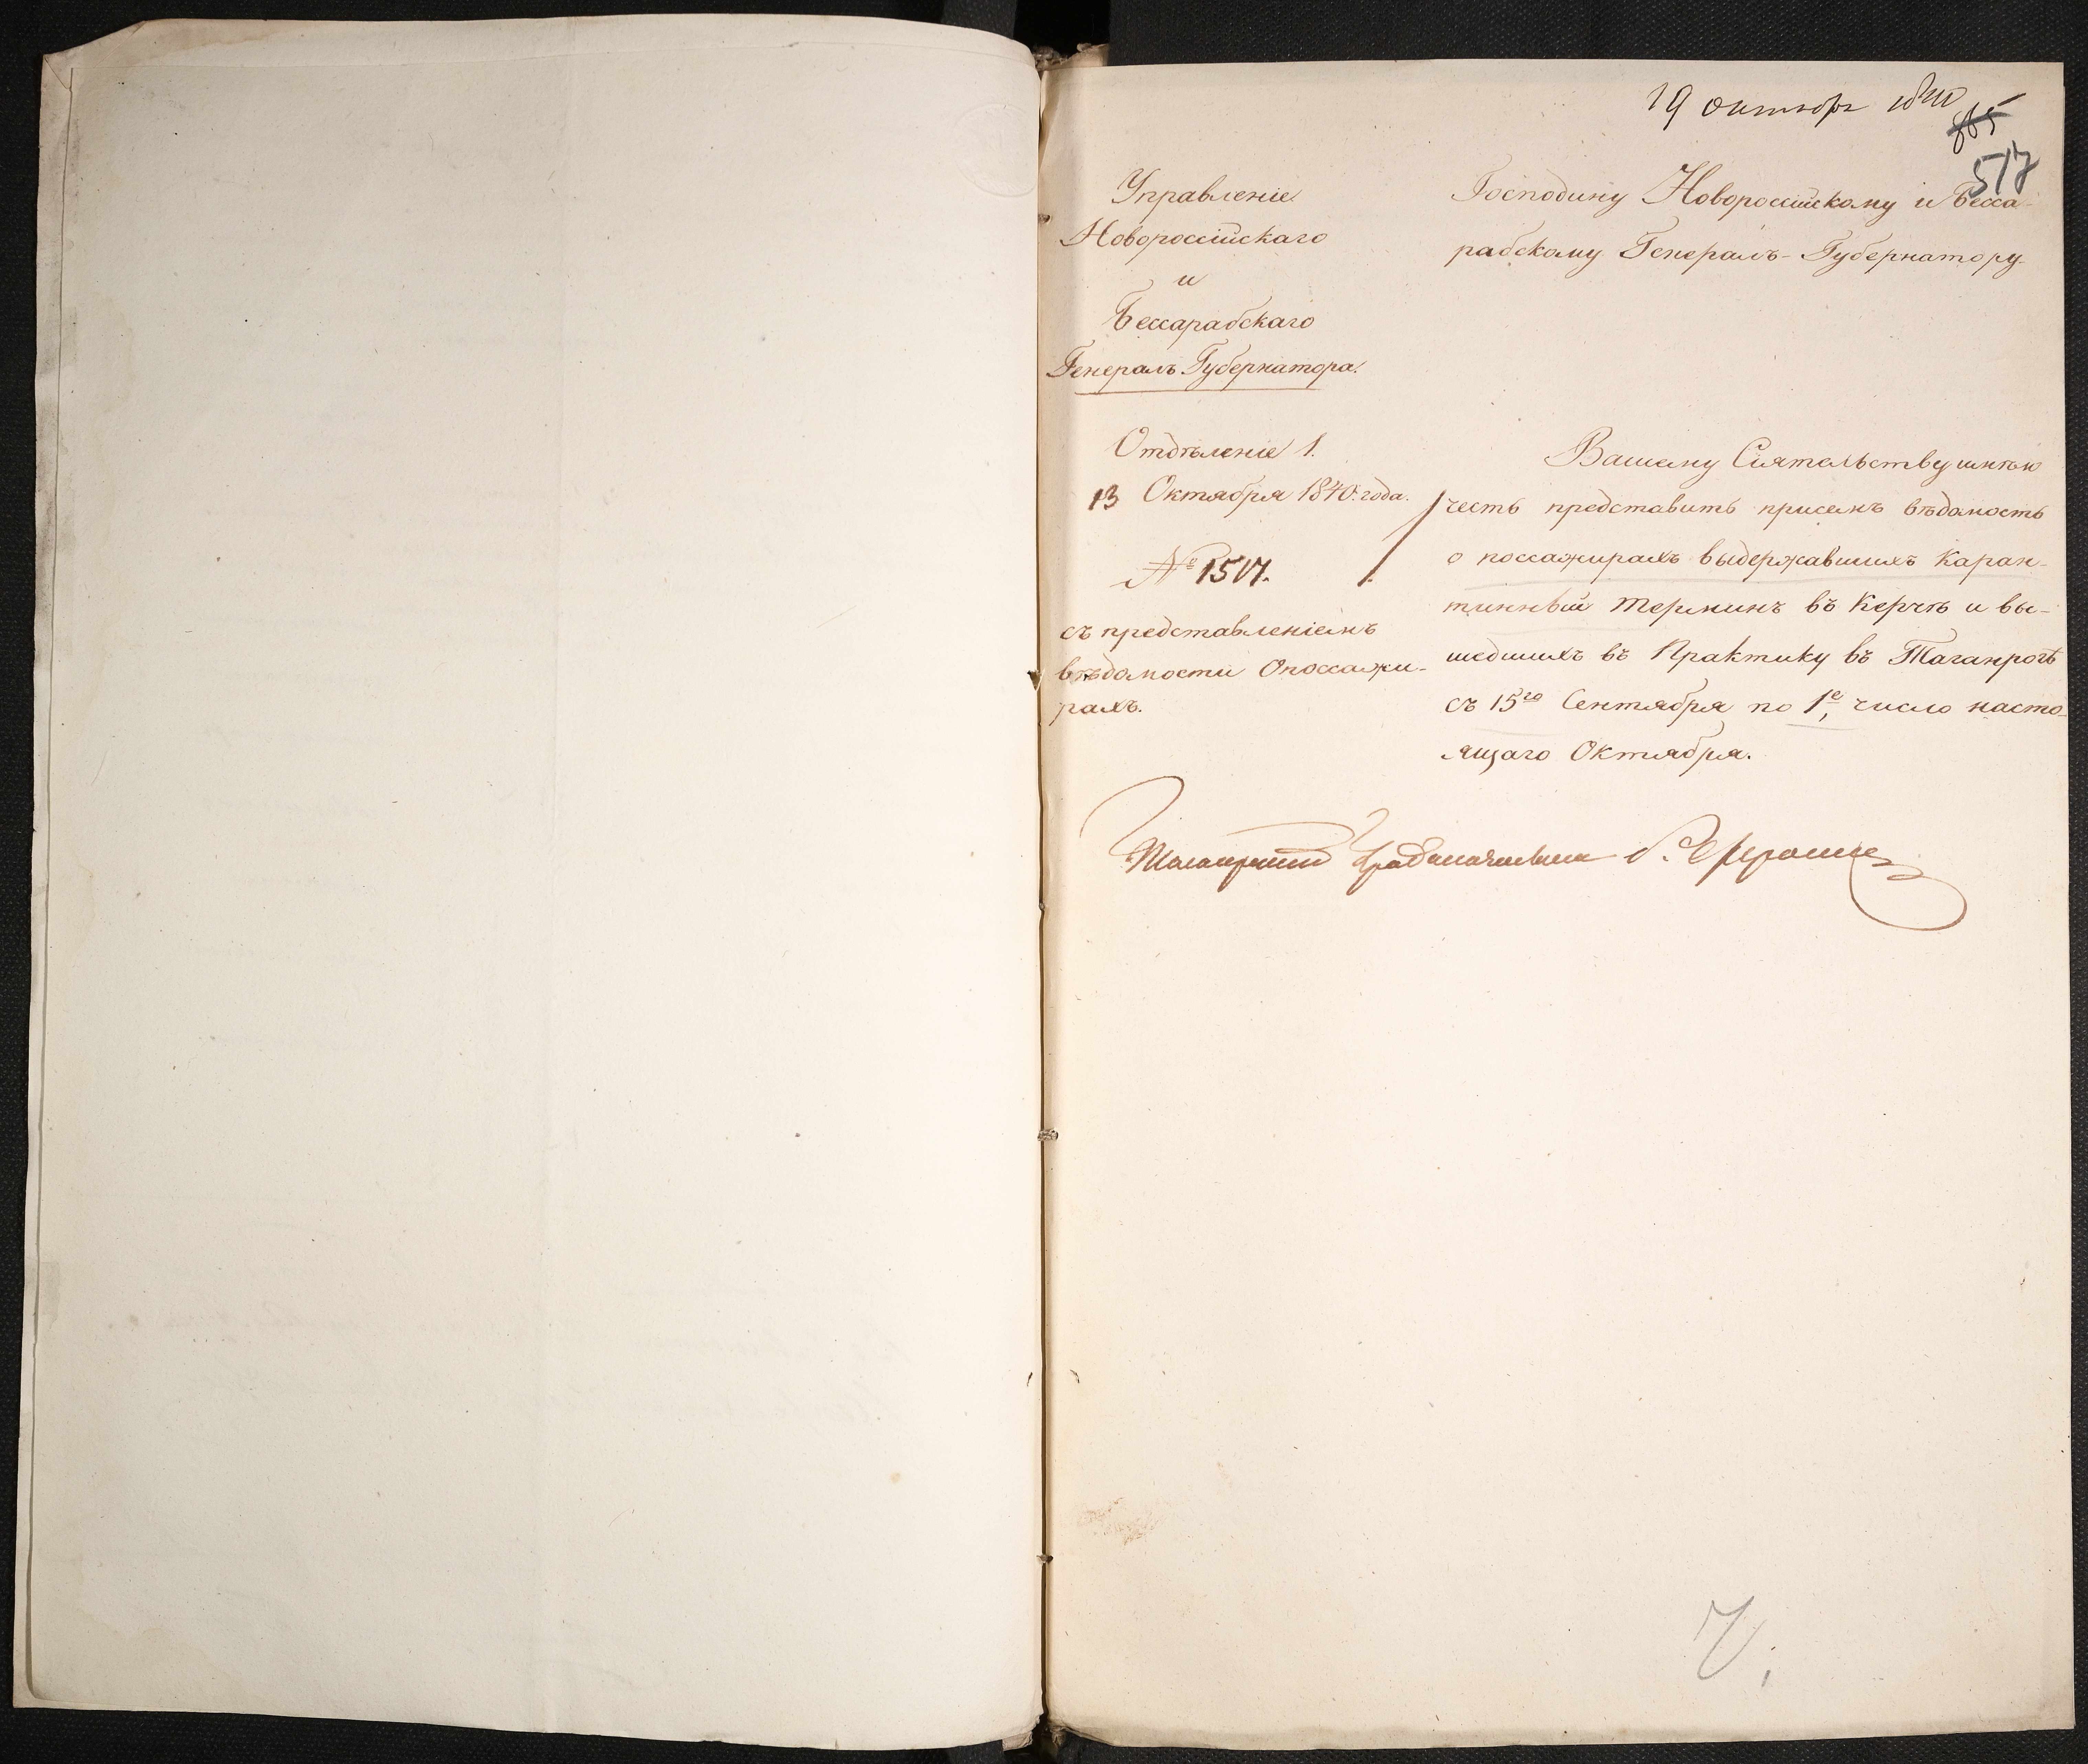 19 октября 1840
865
517
Управленіе
Новороссійскаго
и
Бессарабскаго
Генералъ Губернатора.
Отдѣленіе 1.
13 Октября 1840. года.
№ 1517.
съ представленіемъ
вѣдомости Опоссажи-
рахъ.
Господину Новороссійскому и Бесса-
рабскому Генералъ-Губернатору.
Вашему Сіятельству имѣю
честь представить присемъ вѣдомость
о поссажирахъ выдержавшихъ Каран-
тинный терминъ въ Керчѣ и вы-
шедшихъ въ Практику въ Таганрогѣ
съ 15го Сентября по 1е, число насто-
ящаго Октября.
Таганрогскій Градоначальникъ